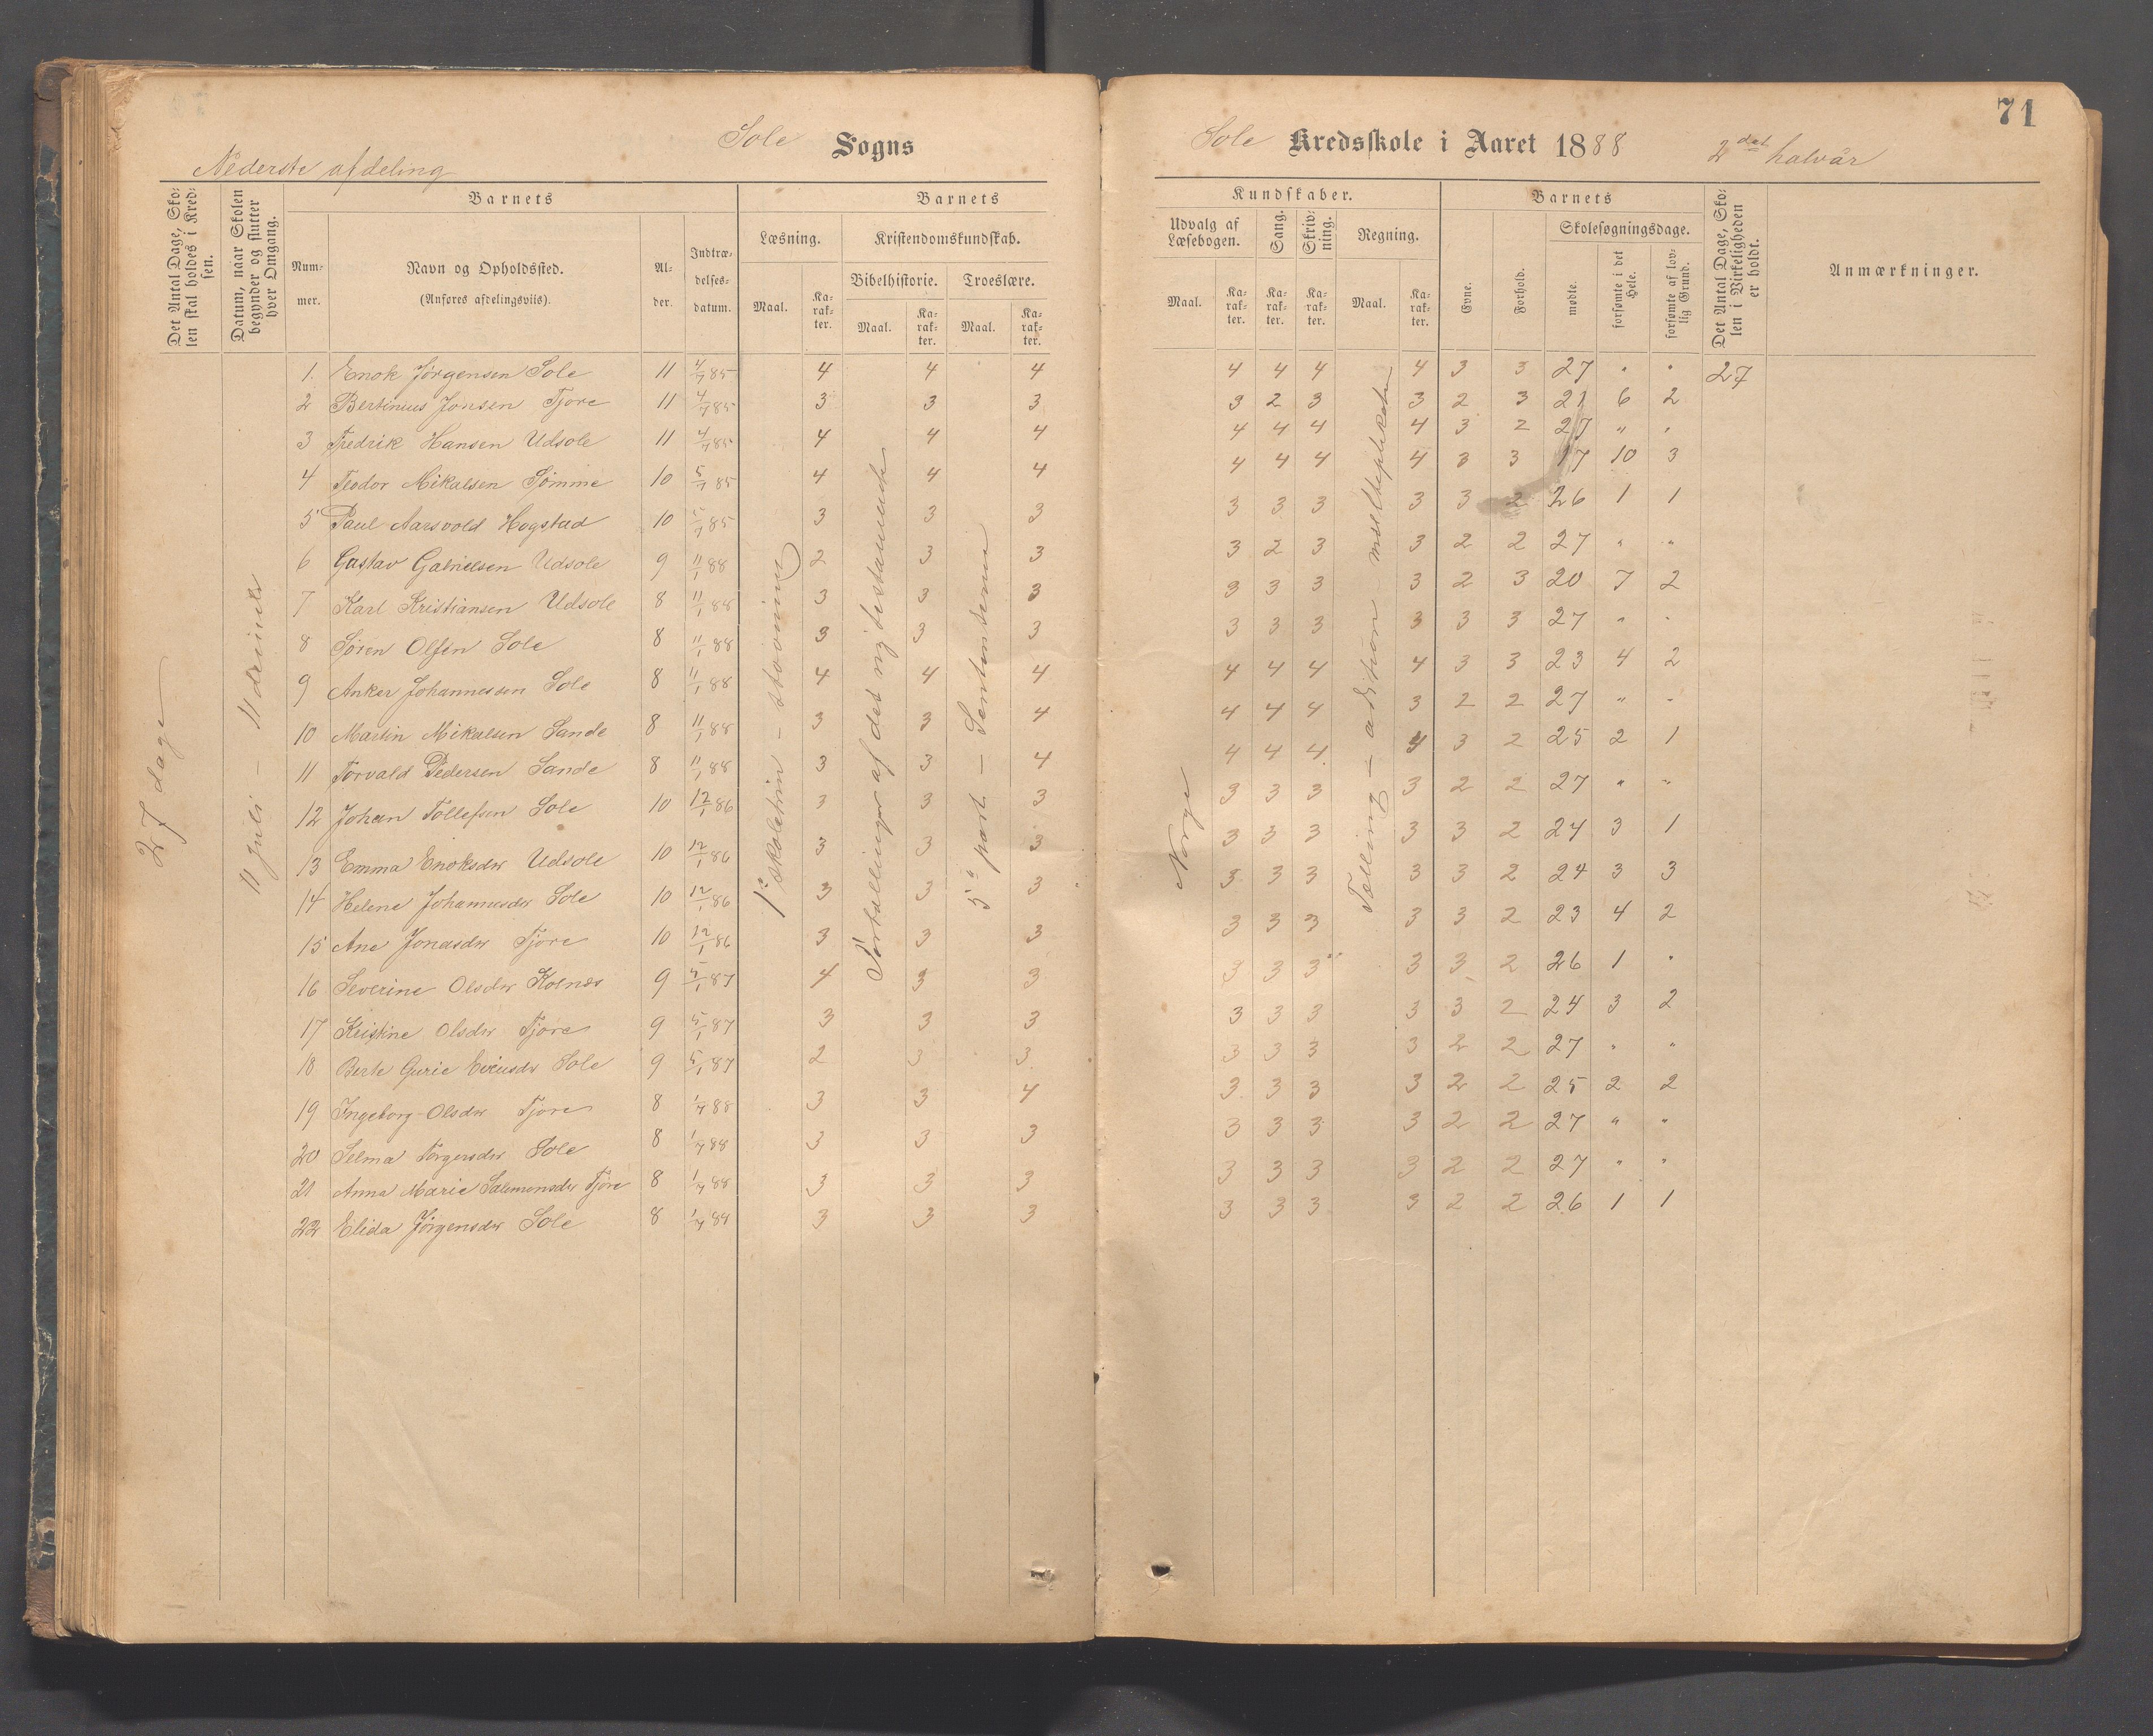 71
Sole Sogns
Sole Kredsskole i Aaret 1888 2det halvår
Nederste afdeling
Det Antal Dage, Skolen skal holdes i Kredsen.
Datum, naar Skolen begynder og slutter hver Omgang.
Barnets
Nummer.
Navn og Opholdssted.
(Anføres afdelingsviis).
Alder.
Indtrædelsesdatum.
Barnets
Læsning.
Maal.
Karakter.
Kristendomskundskab.
Bibelhistorie.
Maal.
Karakter.
Troeslære.
Maal.
Karakter.
Kundskaber.
Udvalg af Læsebogen.
Maal.
Karakter.
Sang.
Karakter.
Skrivning.
Karakter.
Regning.
Maal.
Karakter.
Barnets
Evne.
Forhold.
Skolesøgningsdage.
mødte.
forsømte i det Hele.
forsømte af lovlig Grund.
Det Antal Dage, Skolen i Virkeligheden er holdt.
Anmærkninger.
27 dage
11 juli –
1ste skoletrin – stavning
Fortællinger af det ny testamente
5te part –
Norge
Tælling – adition
1. Enok Jörgensen Sole 11 4/7 85 4 4 4 4 4 4 4 3 3 27 " " 27
2 Bertinius Jonsen Tjore 11 4/7 85 3 3 3 3 2 3 3 2 3 21 6 2
3 Fredrik Hansen Udsole 11 4/7 85 4 4 4 4 4 4 4 3 2 27 " "
4 Teodor Mikalsen Sömme 10 5/7 85 4 4 4 4 4 4 4 3 3 17 10 3
5 Paul Aarsvold Hogstad 10 85 3 3 3 3 3 3 3 3 2 26 1 1
6 Gustav Gabrielsen Udsole 9 11/1 88 2 3 3 3 2 3 3 2 2 27 " "
7 Karl Kristiansen Udsole 8 11/1 88 3 3 3 3 3 3 3 2 3 20 7 2
8 Sören Olsen Sole 8 11/1 88 3 3 3 3 3 3 3 3 3 27 " "
9 Anker Johannessen Sole 8 11/1 88 4 4 4 4 4 4 4 3 3 23 4 2
10 Martin Mikalsen Sande 8 11/1 88 3 3 4 4 4 4 3 2 2 27 " "
11 Torvald Pedersen Sande 8 11/1 88 3 3 4 4 4 4 4 3 2 25 2 1
12 Johan Tollefsen Sole 10 12/1 86 3 3 3 3 3 3 3 2 2 27 " "
13 Emma Enoksdr Udsole 10 12/1 86 3 3 3 3 3 3 3 3 2 24 3 1
14 Helene Johannesdr Sole 10 12/1 86 3 3 3 3 3 3 3 3 2 24 3 3
15 Ane Jonasdr Tjore 10 12/1 86 3 3 3 3 3 3 3 3 2 23 4 2
16 Severine Olsdr Kolnes 9 5/1 87 4 3 3 3 3 3 3 3 2 26 1 "
17 Kristine Olsdr Tjore 9 5/1 87 3 3 3 3 3 3 3 3 2 24 3 2
18 Berte Gurie Sole 9 5/1 87 2 3 3 3 3 3 3 2 2 27 " "
19 Ingeborg Olsdr Tjore 8 1/7 88 3 3 4 3 3 3 3 2 2 25 2 2
20 Selma Torgersdr Sole 8 1/7 88 3 3 3 3 3 3 3 2 2 27 " "
21 Anna Marie Salomonsdr Tjore 8 1/7 88 3 3 3 3 3 3 3 2 2 27 " "
22 Elida Jörgensdr Sole 8 1/7 88 3 3 3 3 3 3 3 2 2 26 1 1